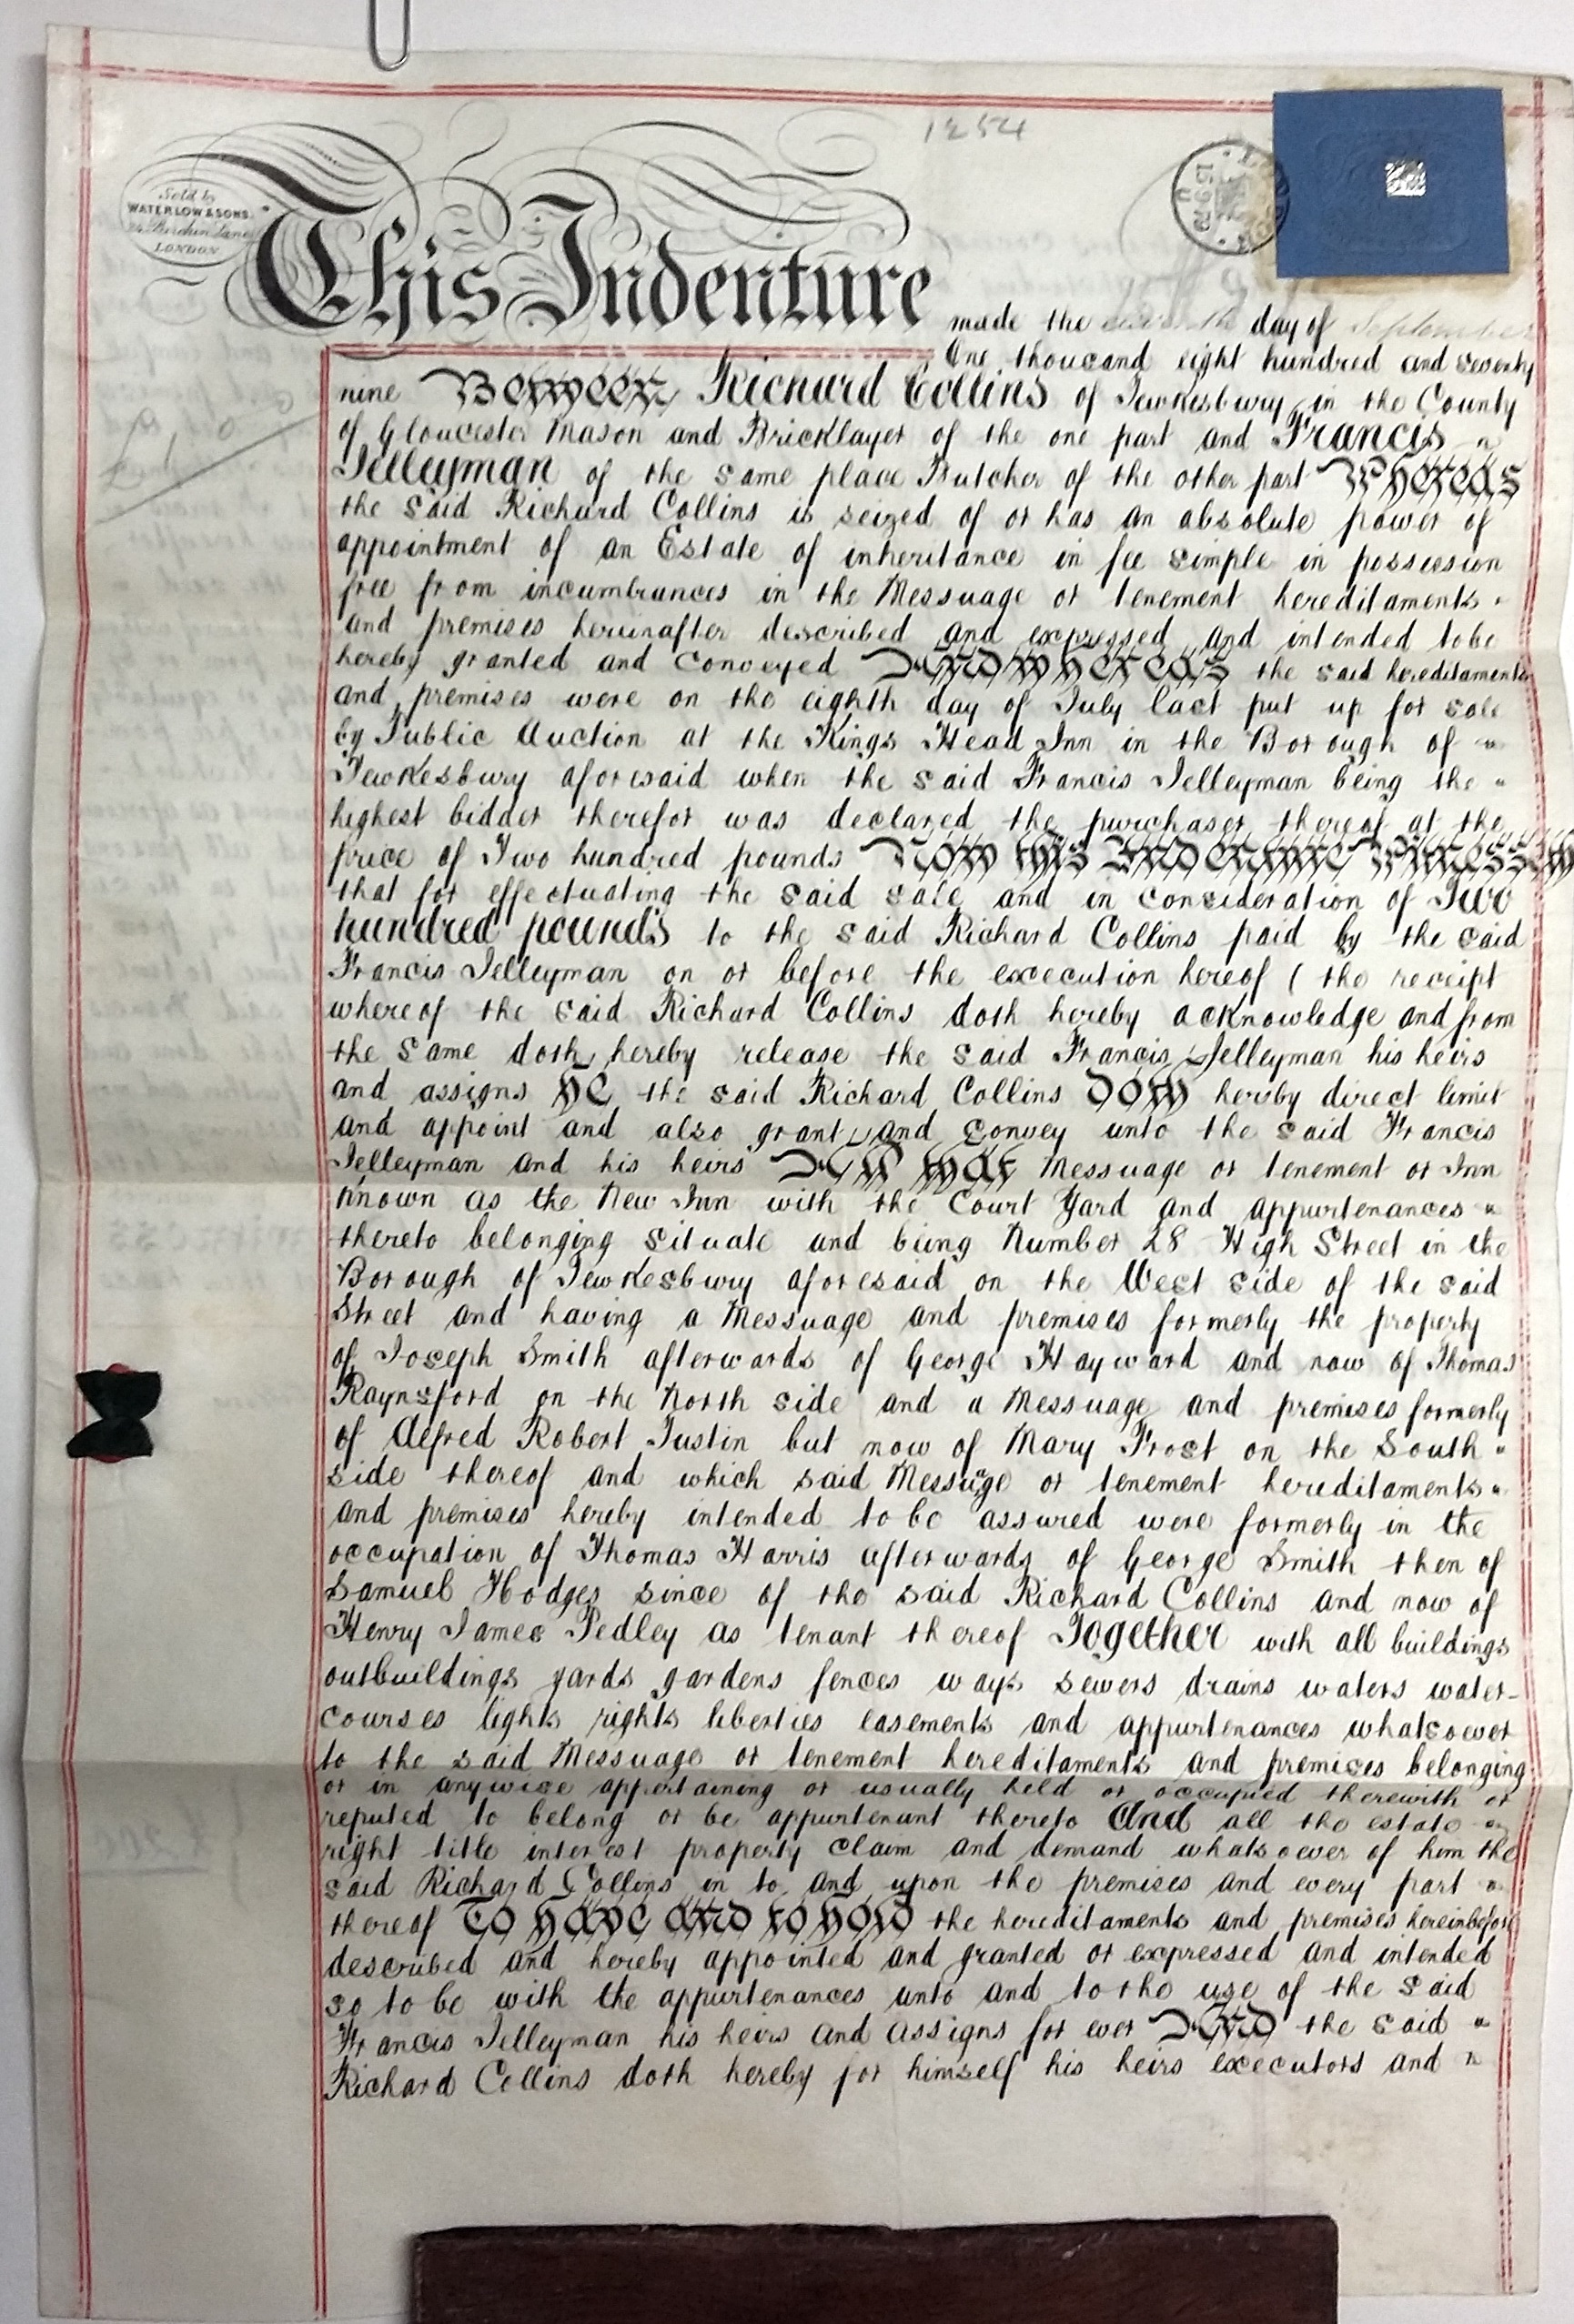 1254
Sold by
WATERLOW & SONS.
Birchin Lane
LONDON
This Indenture
made the day of September
One thousand eight hundred and seventy
nine Between Richard Collins of Tewkesbury in the County
of Gloucester Mason and Bricklayer of the one part and Francis
Jelleyman of the same place Butcher of the other part Whereas
the said Richard Collins is seized of or has an absolute power of
appointment of an Estate of inheritance in fee simple in possession
free from incumbrances in the Messuage or tenement hereditaments
and premises hereinafter described and expressed and intended to be
hereby granted and conveyed And whereas the said hereditaments
and premises were on the eighth day of July last put up for sale
by Public Auction at the Kings Head Inn in the Borough of
Tewkesbury aforesaid when the said Francis Jelleyman being the
highest bidder therefor was declared the purchaser thereof at the
price of Two hundred pounds Now this Indenture Witnesseth
that for effectuating the said sale and in consideration of Two
hundred pounds to the said Richard Collins paid by the said
Francis Jelleyman on or before the execution hereof ( the receipt
whereof the said Richard Collins doth hereby acknowledge and from
the same doth hereby release the said Francis Jelleyman his heirs
and assigns He the said Richard Collins Doth hereby direct limit
and appoint and also grant and convey unto the said Francis
Jelleyman and his heirs All that Messuage or tenement or Inn
known as the New Inn with the Court Yard and appurtenances
thereto belonging situate and being Number 28 High Street in the
Borough of Tewkesbury aforesaid on the West side of the said
Street and having a Messuage and premises formerly the property
of Joseph Smith afterwards of George Hayward and now of Thomas
Raynsford on the North side and a Messuage and premises formerly
of Alfred Robert Justin but now of Mary Frost on the South
side thereof and which said Messuage or tenement hereditaments
and premises hereby intended to be assured were formerly in the
occupation of Thomas Harris afterwards of George Smith then of
Samuel Hodges since of the said Richard Collins and now of
Henry James Pedley as tenant thereof Together with all buildings
outbuildings yards gardens fences ways sewers drains waters water-
courses lights rights liberties easements and appurtenances whatsoever
to the said Messuage or tenement hereditaments and premises belonging
or in anywise appertaining or usually held or occupied therewith or
reputed to belong or be appurtenant thereto And all the estate
right title interest property claim and demand whatsoever of him the
said Richard Collins in to and upon the premises and every part
thereof To have and to hold the hereditaments and premises hereinbefore
described and hereby appointed and granted or expressed and intended
so to be with the appurtenances unto and to the use of the said
Francis Jelleyman his heirs and assigns for ever And the said
Richard Collins doth hereby for himself his heirs executors and